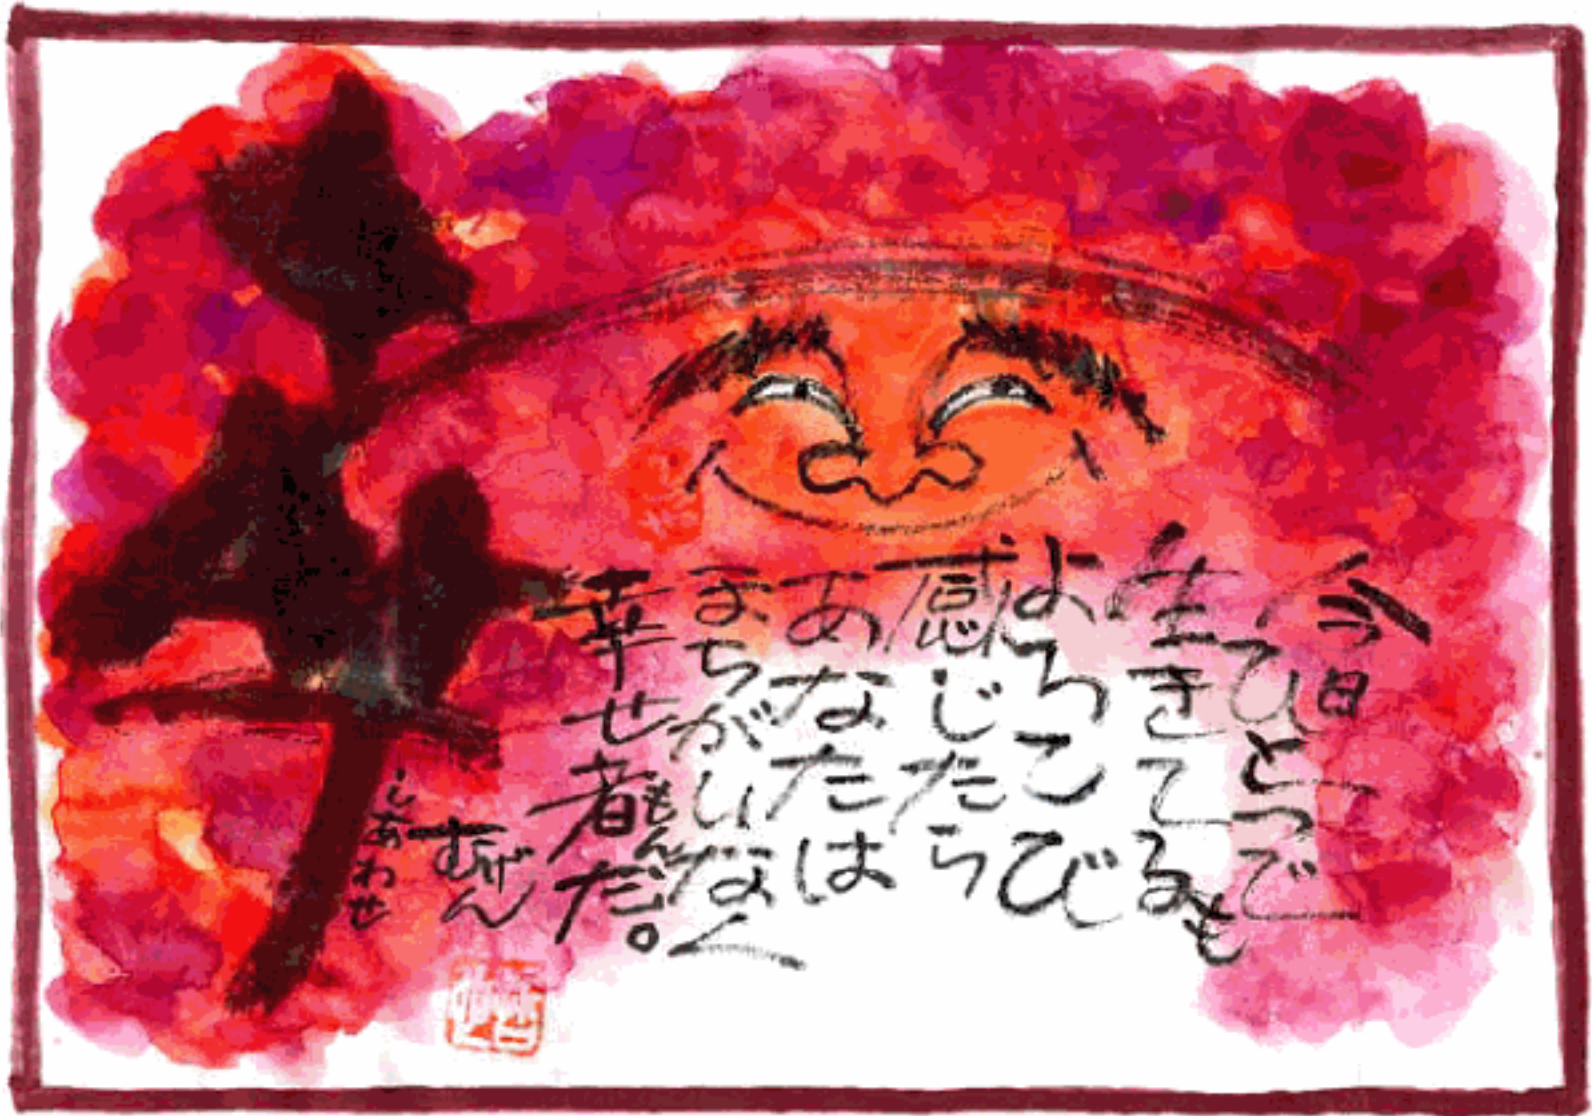 今日ひとつでも
生きてる
よろこび
感じたら
あなたは
まちがいなく
幸せ者だ。
もん
むげん
幸
しあわせ